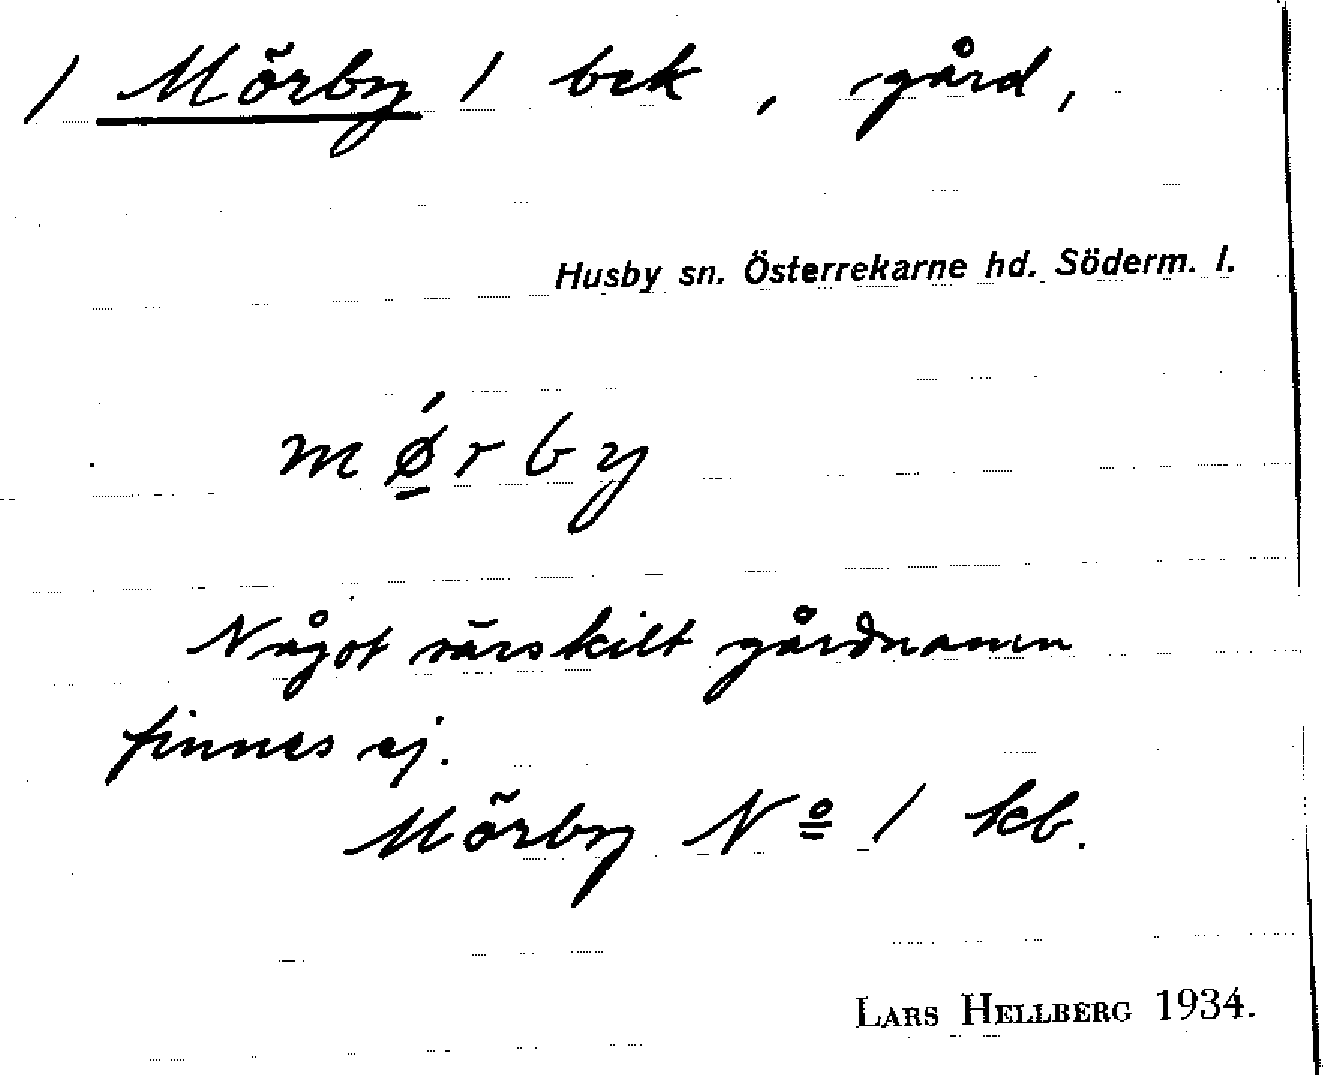 1 Mörby 1 bek, gård,
Husby sn. Österrekarne hd. Söderm. l.
mǿ̲rby
Något särskilt gårdnamn
finnes ej.
Mörby Nº 1 kb.
LARS HELLBERG 1934.